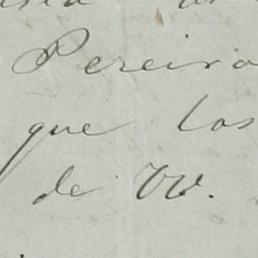 Pereira
que los
de VV.